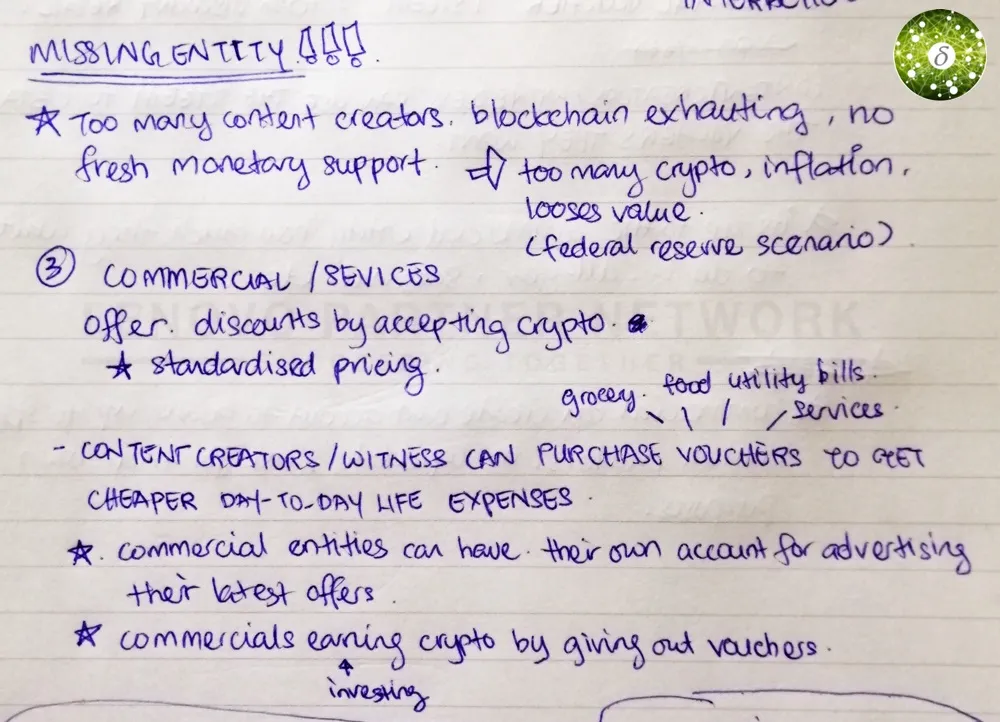 MISSING ENTITY !!!.
☆ Too many content creators. blockchain exhausting, no
fresh monetary support. ⇨ too many crypto, inflation,
looses value.
(federal reserve scenario).
③ COMMERCIAL / SEVICES
offer. discounts by accepting crypto.
☆ standardised pricing.
grocery. food utility bills.
services.
- CONTENT CREATORS / WITNESS CAN PURCHASE VOUCHERS TO GET
CHEAPER DAY-TO-DAY LIFE EXPENSES.
☆. commercial entities can have. their own account for advertising
their latest offers.
☆ commercials earning crypto by giving out vouchers.
↑
investing
δ